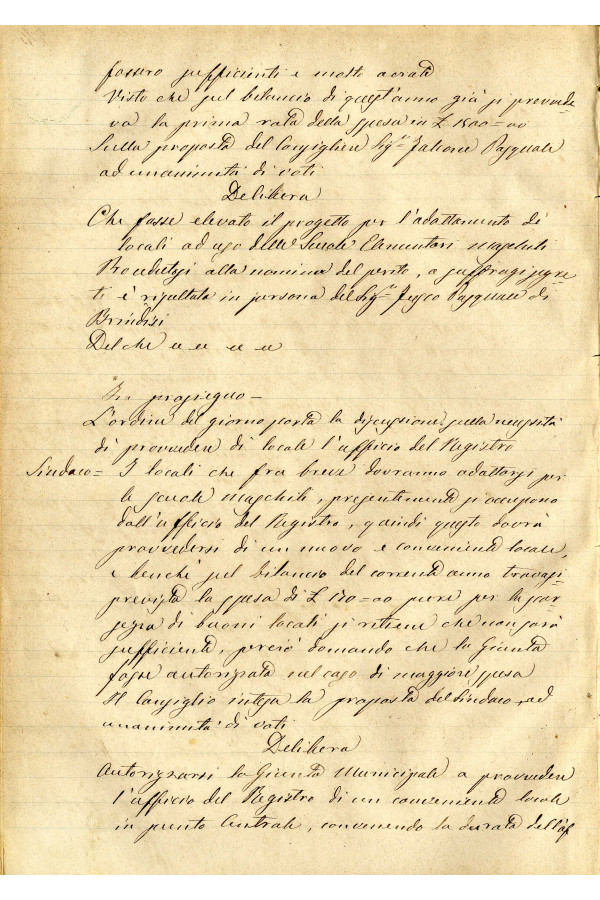 fossero sufficienti e molto aerati
Visto che sul bilancio di quest'anno già si provvede-
va la prima rata della spesa in £ 1500=00
Sulla proposta del Consigliere Sig.r Falcone Pasquale
ad unanimità di voti
Delibera
Che fosse elevato il progetto per l'adattamento di
locali ad uso delle Scuole Elementari maschili
Procedutosi alla nomina del perito, a suffragi segre-
ti è risultata in persona del Sig.r Fusco Pasquale di
Brindisi
Del che
In prosieguo =
L'ordine del giorno porta la discussione sulla necessità
di provvedere di locale l'ufficio del Registro
Sindaco = I locali che fra breve dovranno adattarsi per
le scuole maschili, presentemente si occupano
dall'ufficio del Registro, quindi questo dovrà
provvedersi di un nuovo e conveniente locale,
e benchè sul bilancio del corrente anno trovasi
prevista la spesa di £ 170=00 pure per la scar-
sezza di buoni locali si ritiene che non sarà
sufficiente, perciò domando che la Giunta
fosse autorizzata nel caso di maggiore spesa
Il Consiglio intesa la proposta del Sindaco, ad
unanimità di voti
Delibera
Autorizzarsi la Giunta Municipale a provvedere
l'ufficio del Registro di un conveniente locale
in punto Centrale, convenendo la durata dell'af